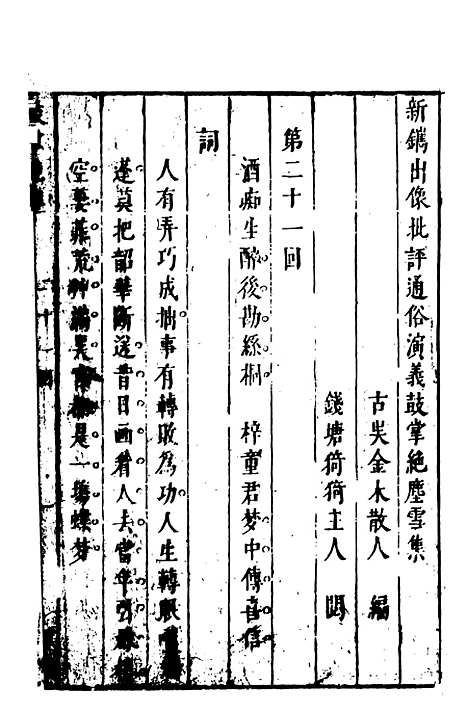 新鐫出像批評通俗演義鼓掌絕塵雪集
古吳金木散人 編
錢塘猗猗主人 閱
第二十一回
酒痴生醉後勘絲桐 梓童君夢中傳音信
詞
人有弄巧成拙事有轉敗為功人生轉眼
蓬莫把韶華斷送昔日画看人去當年引
空萋萋荒艸滿吳是一塲蝶梦